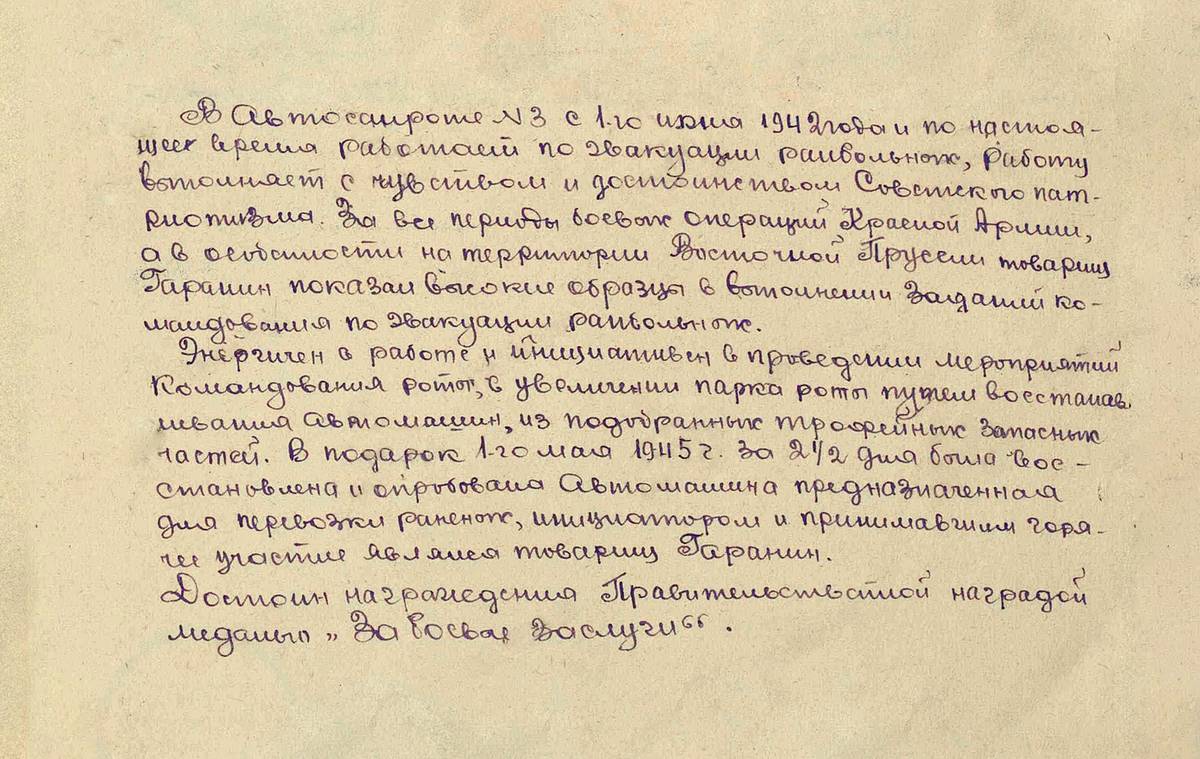 В Автосанроте N3 с 1-го июня 1942 года и по настоя-
щее время работает по эвакуации ранбольных, работу
выполняет с чувством и достоинством Советского пат-
риотизма. За все периоды боевых операций Красной Армии,
а в особенности на территории Восточной Пруссии товарищ
Гаранин показал высокие образцы в выполнении заданий ко-
мандования по эвакуации ранбольных.
Энергичен в работе и инициативен в проведении мероприятий
Командования роты, в увеличении парка роты путем восстанав
ливания автомашин, из подобранных трофейных запасных
частей. В подарок 1-го мая 1945 г. за 2 1/2 дня была вос-
становлена и опробована Автомашина предназначенная
для перевозки раненых, инициатором и принимавшим горя-
чее участие являлся товарищ Гаранин.
Достоин награждения Правительственной наградой
медалью „За боевые заслуги“.